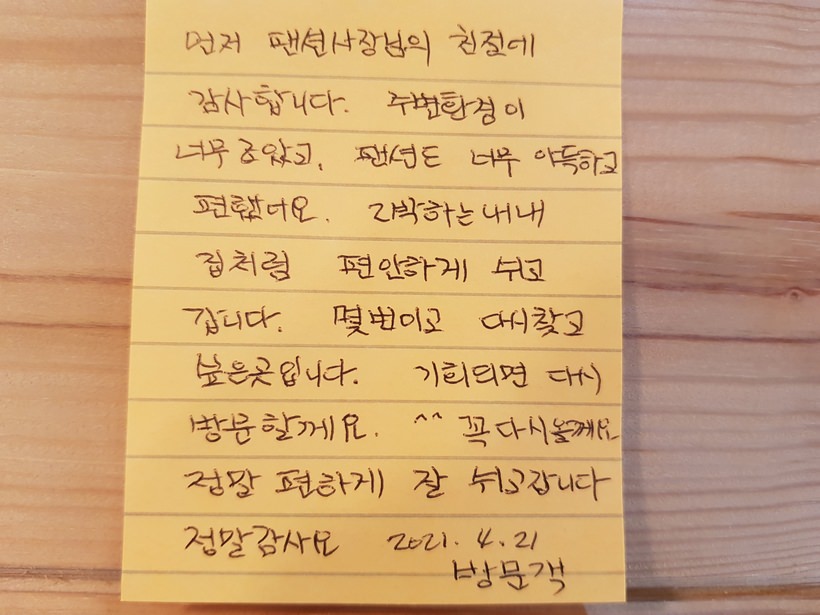 먼저 팬션사장님의 친절에
감사합니다. 주변환경이
너무 좋았고, 팬션도 너무 아득하고
편했어요. 2박하는내내
집처럼 편안하게 쉬고
갑니다. 몇번이고 다시찾고
싶은곳입니다. 기회되면 다시
방문할께요. ^^ 꼭다시올께요
정말 편하게 잘 쉬고갑니다
정말감사요 2021. 4. 21
방문객